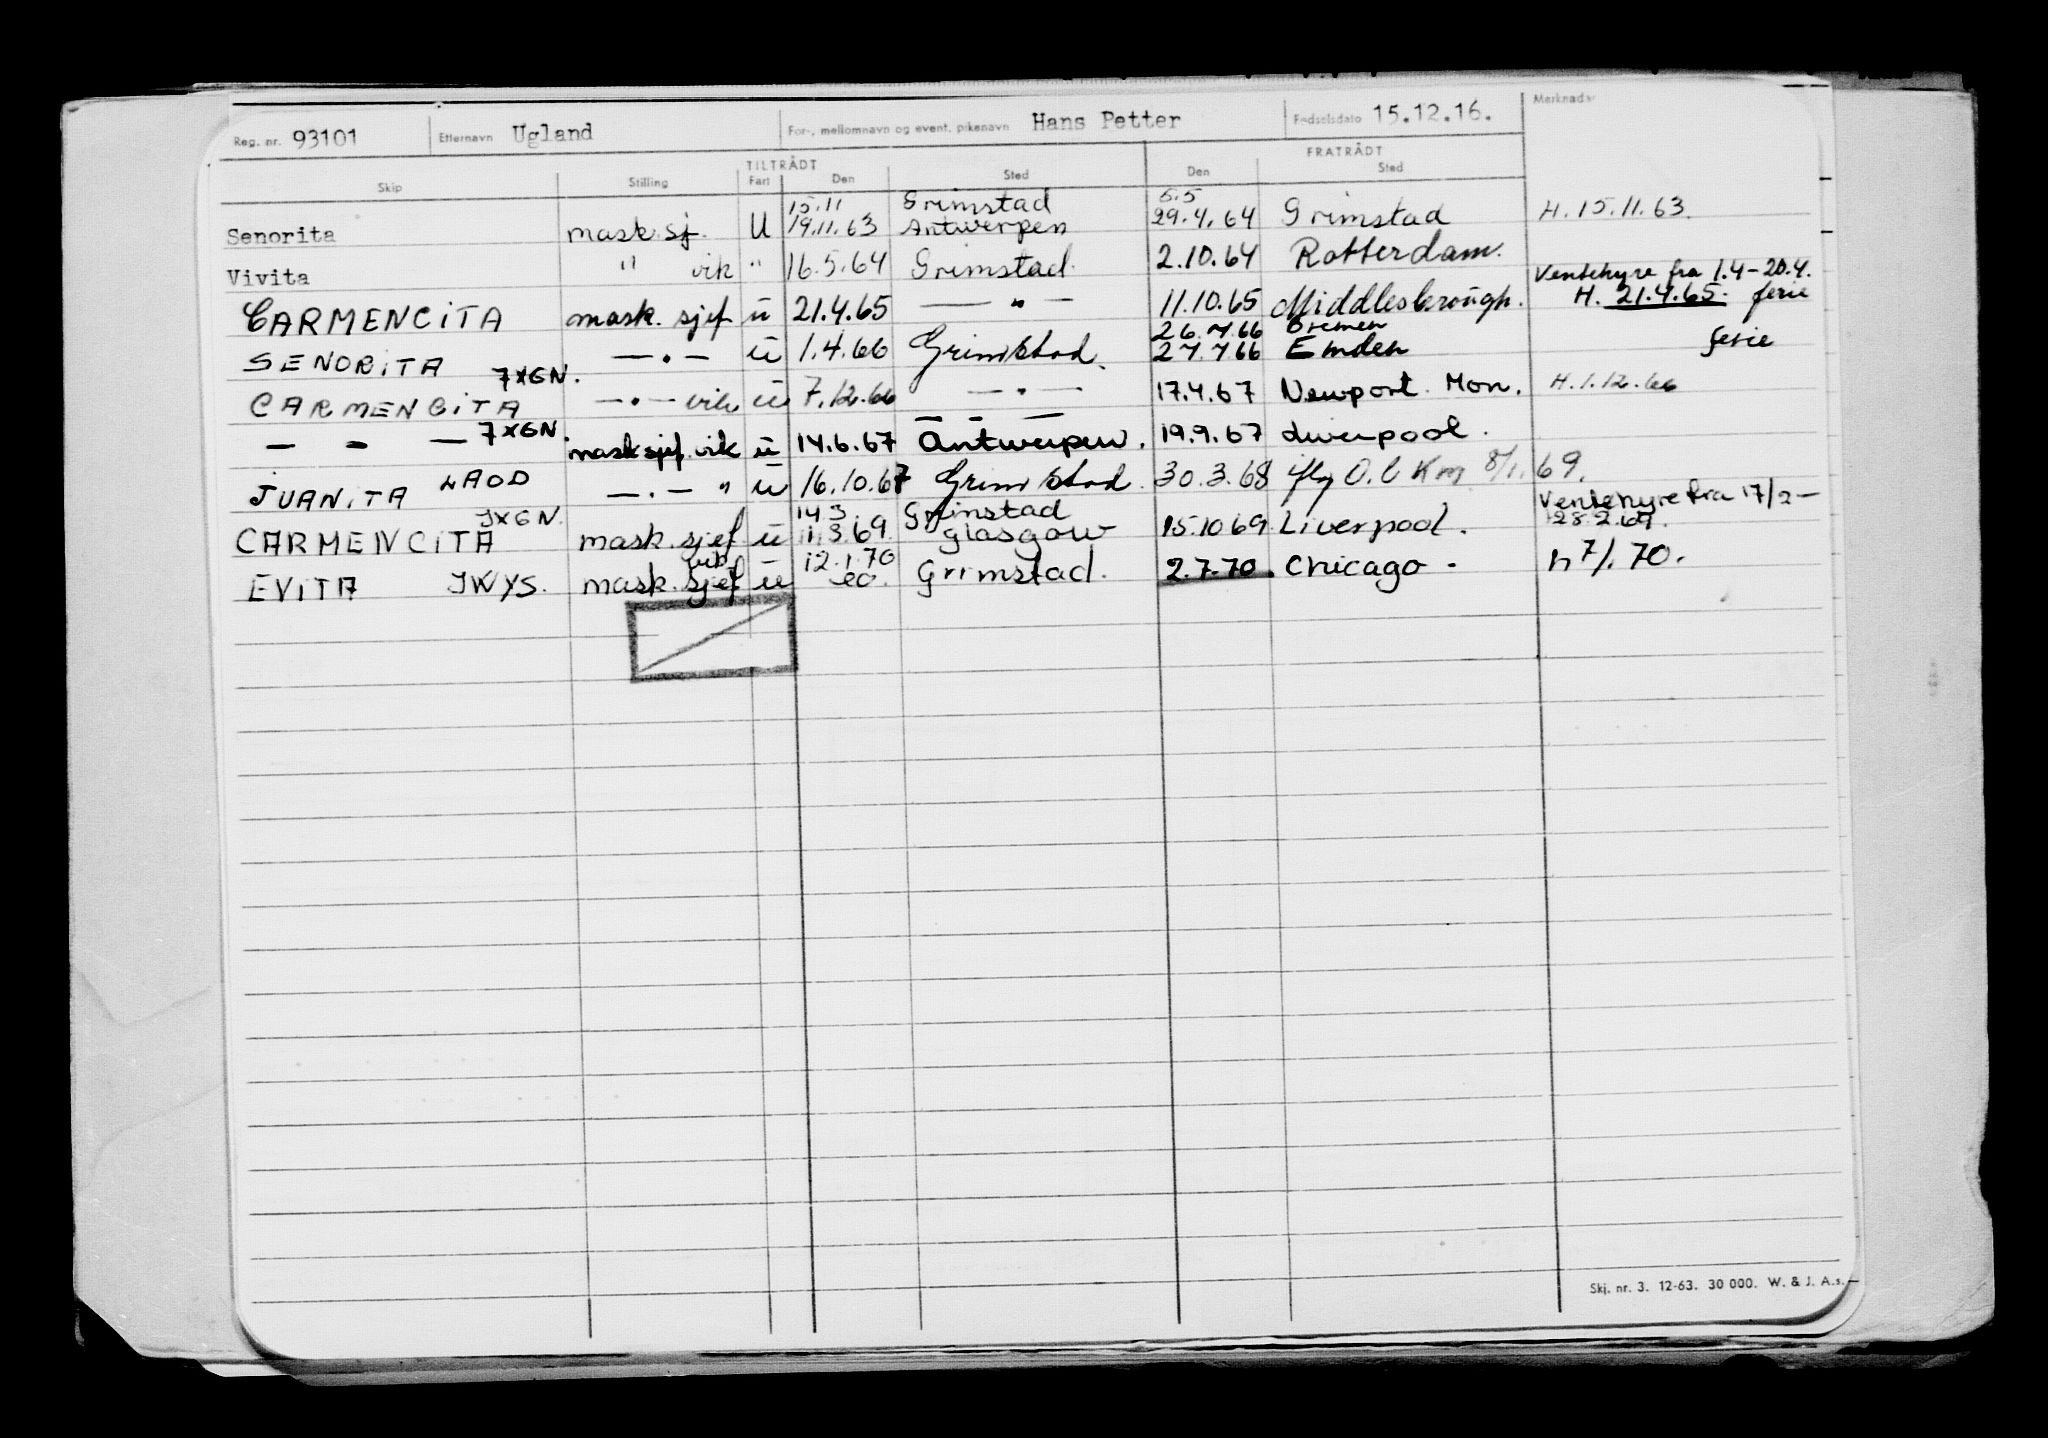 Reg. nr. 93101 Etternavn Ugland For-, mellomnavn og event. pikenavn Hans Petter Fødselsdato 15.12.16. Merknader
TILTRÅDT FRATRÅDT
Skip Stilling Fart Den Sted Den Sted
15.11 Grimstad 5.5
Senorita mask.sj. U 19.11.63 Antwerpen 29.4.64 Grimstad H. 15.11.63.
Vivita " vik " 16.5.64 Grimstad. 2.10.64 Rotterdam.
Ventehyre fra 1.4-20.4.
CARMENCITA mask. sjef u 21.4.65 — " — 11.10.65 Middlesbrough. H. 21.4.65. ferie
26.7.66 Bremen
SENORITA — " — u 1.4.66 Grimstad. 27.7.66 Emden ferie
JXGN.
CARMENCITA — " — vik u 7.12.66 — " — 17.4.67 Newport. Mon. H. 1.12.66
— " — JXGN. mask sjef. vik u 14.6.67 Antwerpen. 19.9.67 Liverpool.
JUANITA LAOD — " — " u 16.10.67 Grimstad. 30.3.68 iflg O.C Km 8/1.69.
JXGN. 14.3. Grimstad Ventehyre fra 17/2 –
CARMENCITA mask. sjef u 1.3.69. Glasgow 15.10 69. Liverpool. 28.2.69.
vik 12.1.70
EVITA JWYS. mask. sjef u Grimstad. 2.7.70. Chicago - h 7/1.70.
Skj. nr. 3. 12-63. 30 000. W. & J. A.s.